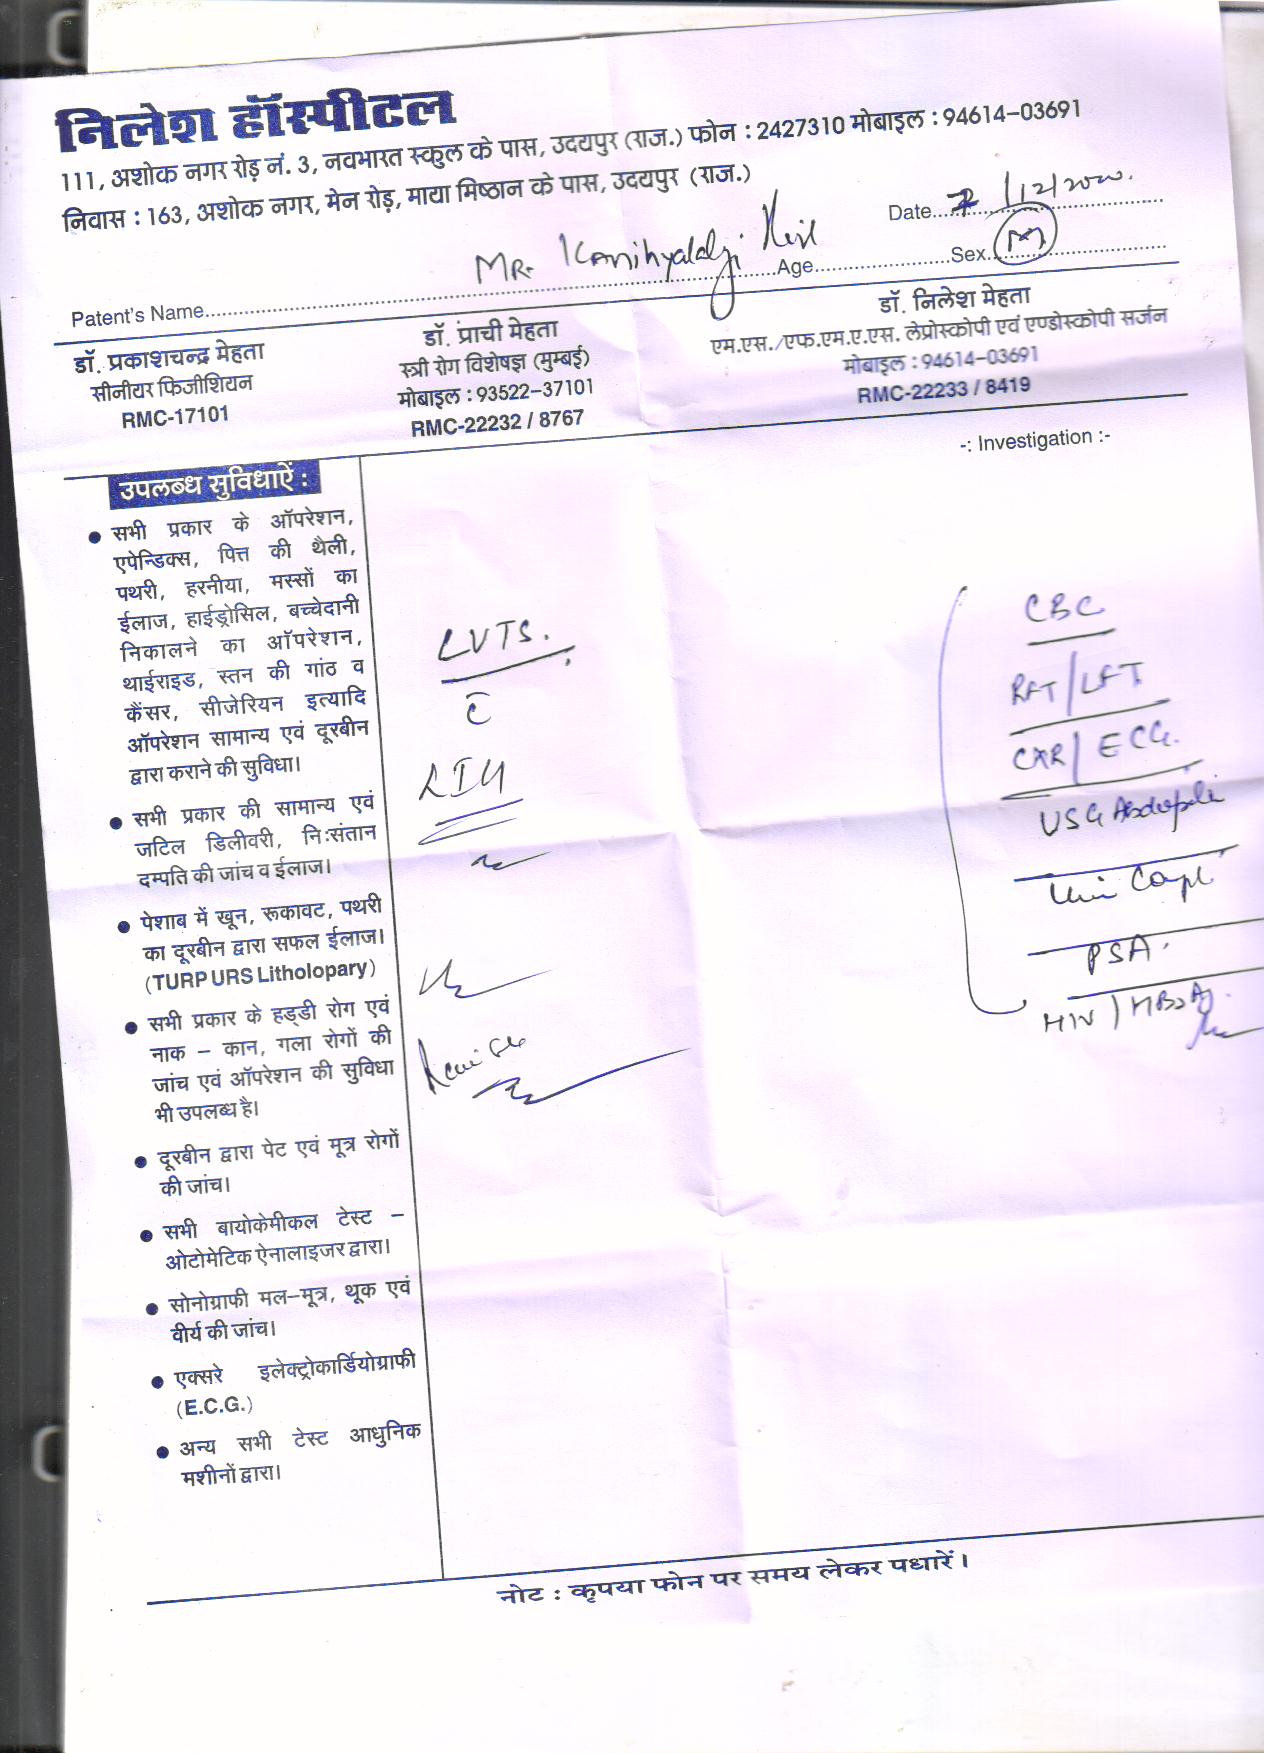 निलेश हॉस्पीटल
111, अशोक नगर रोड़ नं. 3, नवभारत स्कुल के पास, उदयपुर (राज.) फोन : 2427310 मोबाइल : 94614-03691
निवास : 163, अशोक नगर, मेन रोड़, माया मिष्ठान के पास, उदयपुर (राज.)
Date.....
Patent's Name..... MR. Age..... Sex..... M
डॉ. प्रकाशचन्द्र मेहता
सीनीयर फिजीशियन
RMC-17101
डॉ. प्राची मेहता
स्त्री रोग विशेषज्ञ (मुम्बई)
मोबाइल : 93522-37101
RMC-22232 / 8767
डॉ. निलेश मेहता
एम.एस./एफ.एम.ए.एस. लेप्रोस्कोपी एवं एण्डोस्कोपी सर्जन
मोबाइल : 94614-03691
RMC-22233 / 8419
-: Investigation :-
उपलब्ध सुविधाऐं :
सभी प्रकार के ऑपरेशन,
एपेन्डिक्स, पित्त की थैली,
पथरी, हरनीया, मस्सों का
ईलाज, हाईड्रोसिल, बच्चेदानी
निकालने का ऑपरेशन,
थाईराइड, स्तन की गांठ व
कैंसर, सीजेरियन इत्यादि
ऑपरेशन सामान्य एवं दूरबीन
द्वारा कराने की सुविधा।
सभी प्रकार की सामान्य एवं
जटिल डिलीवरी, निःसंतान
दम्पति की जांच व ईलाज।
पेशाब में खून, रूकावट, पथरी
का दूरबीन द्वारा सफल ईलाज।
(TURP URS Litholopary)
सभी प्रकार के हड्डी रोग एवं
नाक – कान, गला रोगों की
जांच एवं ऑपरेशन की सुविधा
भी उपलब्ध है।
दूरबीन द्वारा पेट एवं मूत्र रोगों
की जांच।
सभी बायोकेमीकल टेस्ट –
ओटोमेटिक ऐनालाइजर द्वारा।
सोनोग्राफी मल–मूत्र, थूक एवं
वीर्य की जांच।
एक्सरे इलेक्ट्रोकार्डियोग्राफी
(E.C.G.)
अन्य सभी टेस्ट आधुनिक
मशीनों द्वारा।
LUTS.
c̄
RIH
CBC
RFT/LFT
CXR/ECG.
USG
PSA.
HIV/HBsAg
नोट : कृपया फोन पर समय लेकर पधारें।